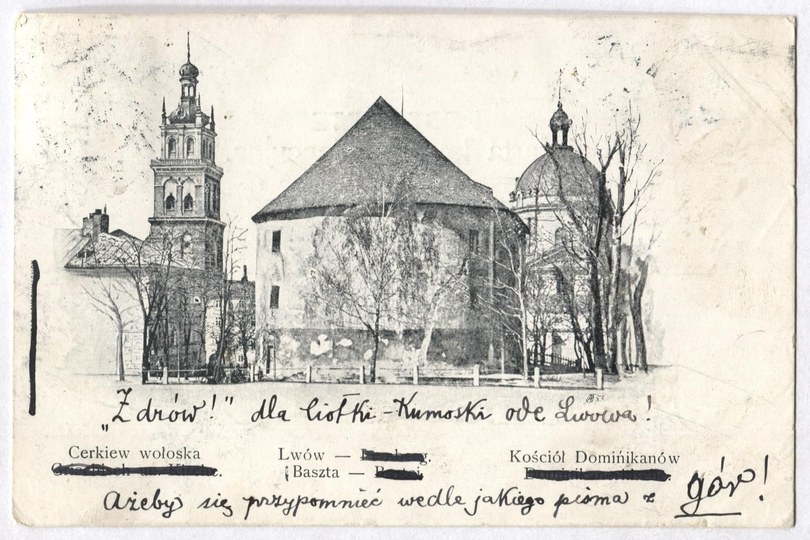 „Zdrów!" dla Ciotki-Kumoski ode Lwowa!
Cerkiew wołoska
Lwów —
Kościół Dominikanów
Baszta —
Ażeby się przypomnieć wedle jakiego pisma z gór!